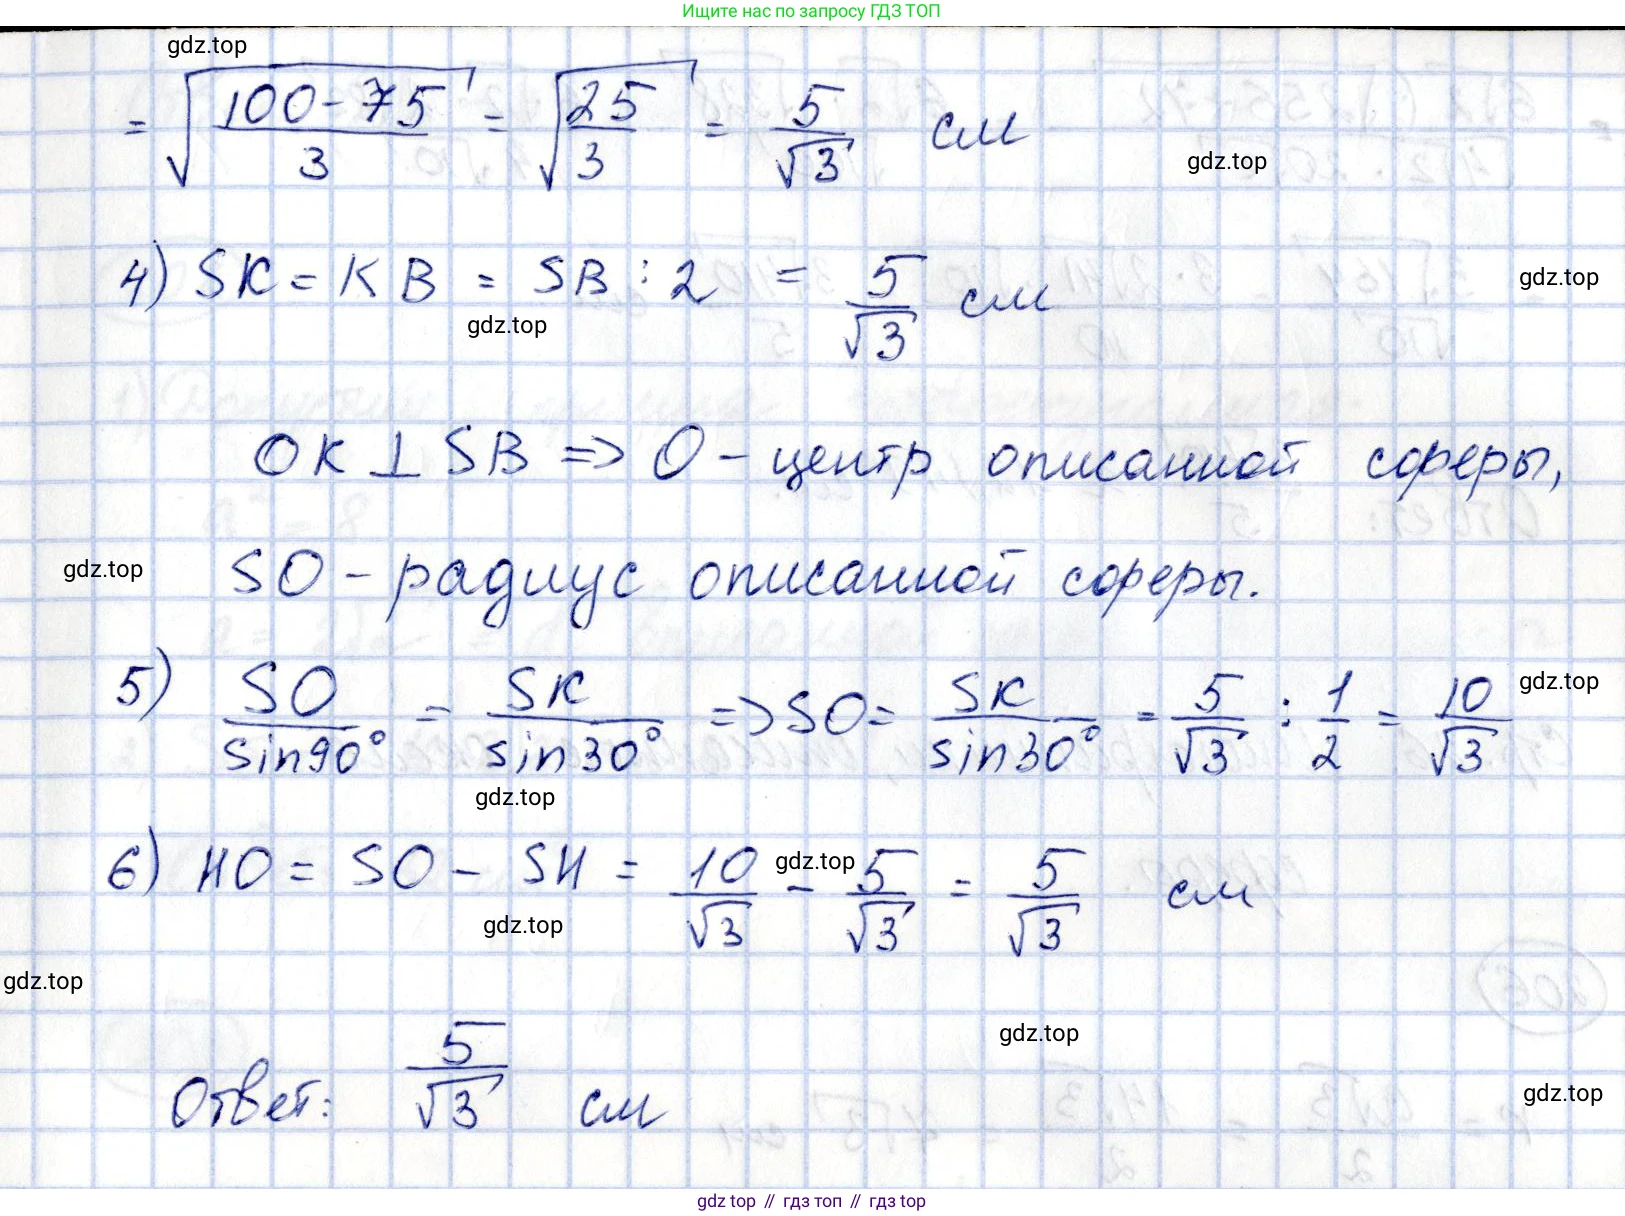 Ищите нас по запросу ГДЗ ТОП
gdz.top
= √((100-75)/3) = √(25/3) = 5/√3 см
gdz.top
4) SK = KB = SB : 2 = 5/√3 см
gdz.top
gdz.top
OK ⊥ SB => O - центр описанной сферы,
gdz.top
SO - радиус описанной сферы.
5) SO/sin90° = SK/sin30° => SO = SK/sin30° = 5/√3 : 1/2 = 10/√3
gdz.top
gdz.top
6) HO = SO - SH = 10/√3 - 5/√3 = 5/√3 см
gdz.top
gdz.top
gdz.top
gdz.top
Ответ: 5/√3 см
gdz.top
gdz.top // гдз топ // гдз top